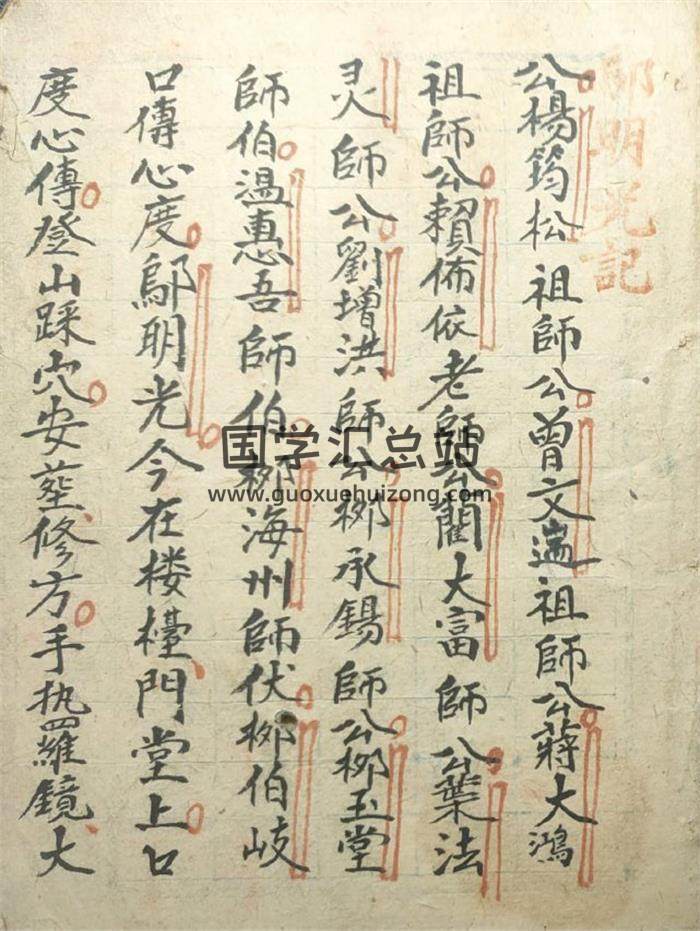 鄔明光記
公楊筠松祖師公曾文遄祖師公蔣大鴻
祖師公賴佈依老師公藺大富師公葉法
灵師公劉增洪師公栁承錫師公栁玉堂
師伯溫惠吾師伯栁海州師伏栁伯岐
口傳心度鄔明光今在楼檯門堂上口
度心傳登山踩穴安塟修方手执羅鏡大
国学汇总站
www.guoxuehuizong.com